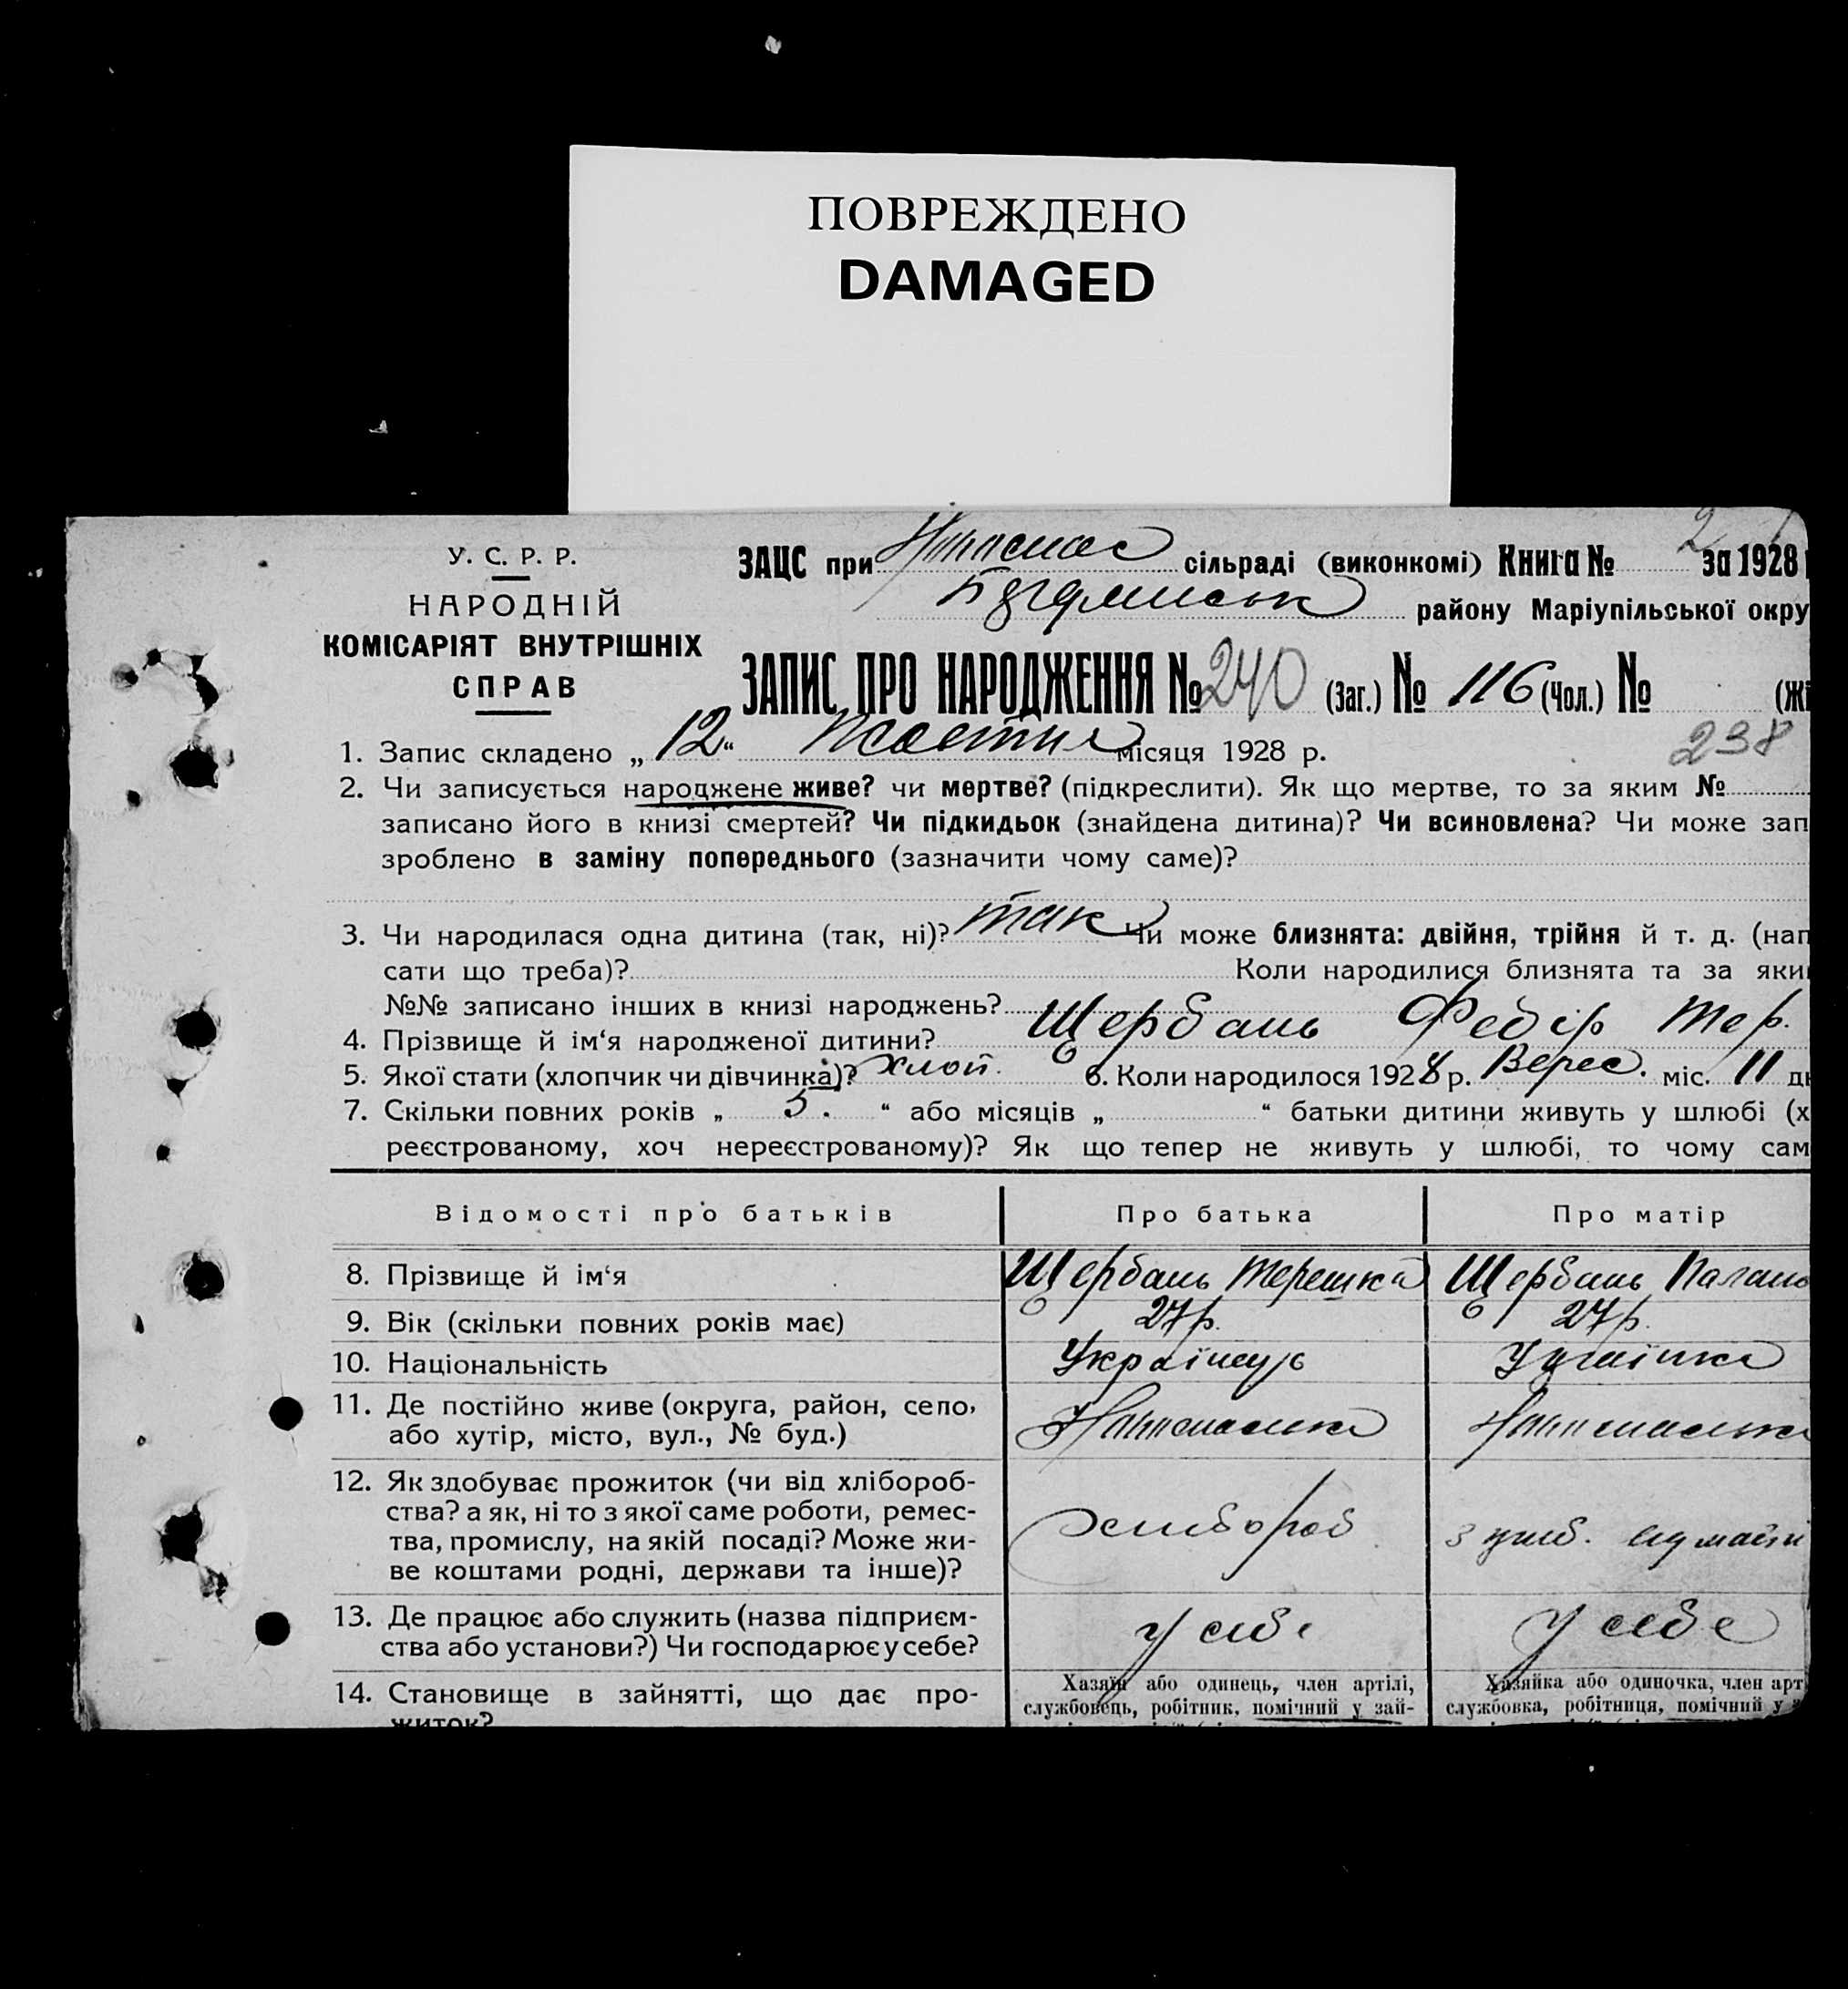 ПОВРЕЖДЕНО
DAMAGED
У. С. Р. Р.
НАРОДНІЙ
КОМІСАРІЯТ ВНУТРІШНІХ
СПРАВ
ЗАЦС при сільраді (виконкомі) Книга № 2 за 1928
району Маріупільської окру
ЗАПИС ПРО НАРОДЖЕННЯ № 240 (Заг.) № 116 (Чол.) № (Жі
238
1. Запис складено „ 12 “ Жовтня місяця 1928 р.
2. Чи записується народжене живе? чи мертве? (підкреслити). Як що мертве, то за яким №
записано його в книзі смертей? Чи підкидьок (знайдена дитина)? Чи всиновлена? Чи може зап
зроблено в заміну попереднього (зазначити чому саме)?
3. Чи народилася одна дитина (так, ні)? так Чи може близнята: двійня, трійня й т. д. (нап
сати що треба)? Коли народилися близнята та за яки
№№ записано інших в книзі народжень?
4. Прізвище й ім‘я народженої дитини? Щербань Федір Тер.
5. Якої стати (хлопчик чи дівчинка)? хлоп. 6. Коли народилося 1928 р. Верес. міс. 11 д
7. Скільки повних років „ 5. “ або місяців „ “ батьки дитини живуть у шлюбі (х
реєстрованому, хоч нереєстрованому)? Як що тепер не живуть у шлюбі, то чому сам
Відомості про батьків Про батька Про матір
8. Прізвище й ім‘я Щербань Терешка Щербань Палань
9. Вік (скільки повних років має) 27 р. 27 р.
10. Національність Українець
11. Де постійно живе (округа, район, село,
або хутір, місто, вул., № буд.)
12. Як здобуває прожиток (чи від хлібороб-
ства? а як, ні то з якої саме роботи, ремес-
тва, промислу, на якій посаді? Може жи-
ве коштами родні, держави та інше)?
хлібороб
13. Де працює або служить (назва підприєм-
ства або установи?) Чи господарює у себе?
у себе у себе
14. Становище в зайнятті, що дає про-
житок?
Хазяїн або одинець, член артілі,
службовець, робітник, помічний у зай-
Хазяйка або одиночка, член арт
службовка, робітниця, помічний у